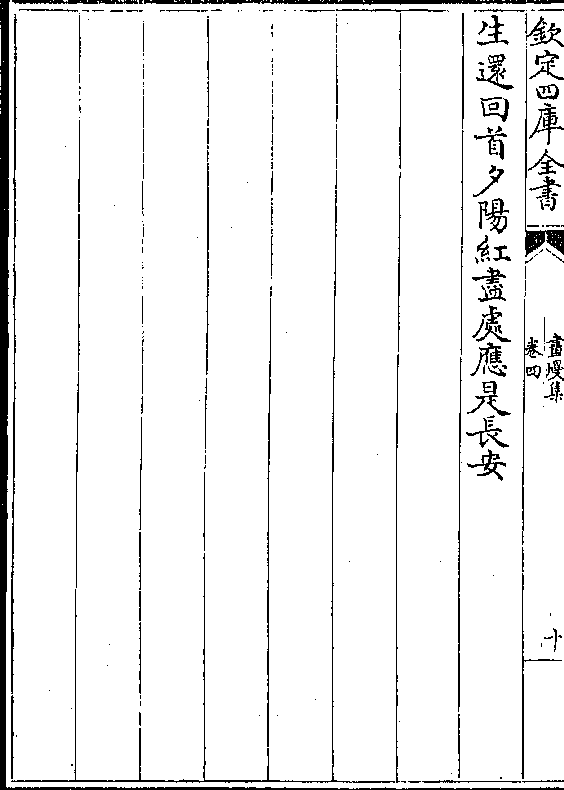 欽定四庫全書
畫墁集
卷四
十
生還回首夕陽紅盡處應是長安